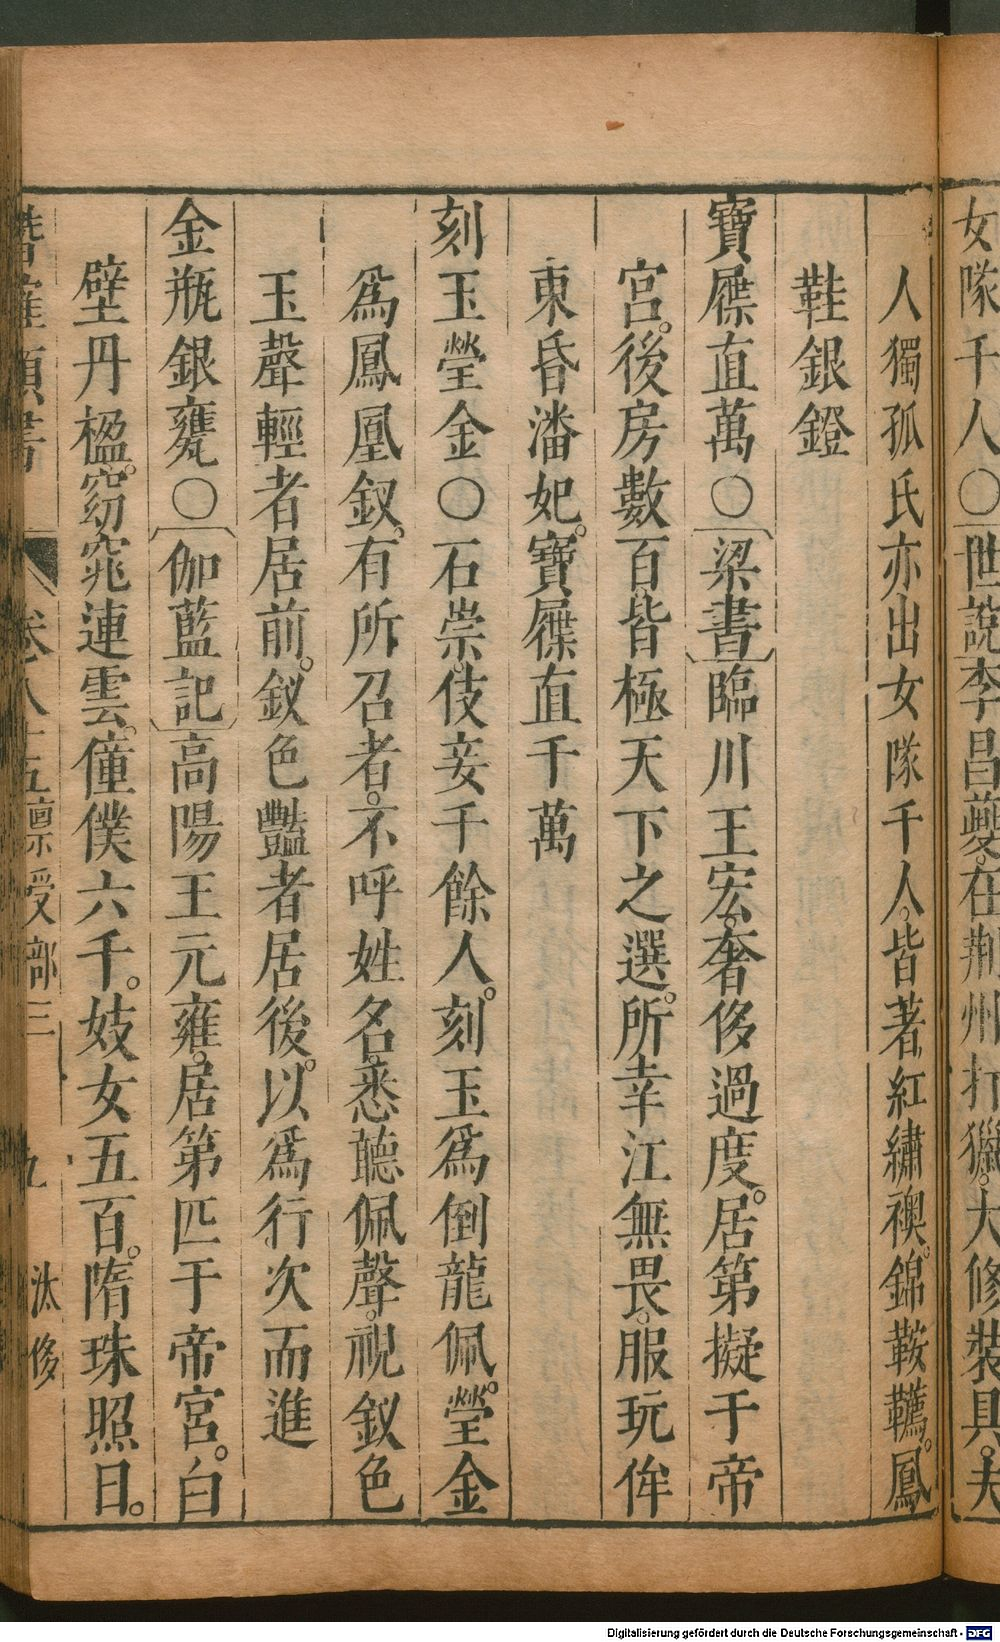 女隊千人〇世說李昌夔在荆州打獵大修裝具夫
人獨孤氏亦出女隊千人皆著紅繡襖錦鞍韉鳳
鞋銀鐙
寶屧直萬〇梁書臨川王宏奢侈過度居第擬于帝
宮後房數百皆極天下之選所幸江無畏服玩侔
東昏潘妃寶屧直千萬
刻玉瑩金〇石崇伎妾千餘人刻玉爲倒龍佩瑩金
爲鳳凰釵有所召者不呼姓名悉聽佩聲視釵色
玉聲輕者居前釵色豔者居後以爲行次而進
金瓶銀甕〇伽藍記高陽王元雍居第匹于帝宮白
壁丹楹窈窕連雲僮僕六千妓女五百隋珠照日
潛確類書 卷八十五稟受部三 九 汰侈
Digitalisierung gefördert durch die Deutsche Forschungsgemeinschaft - DFG